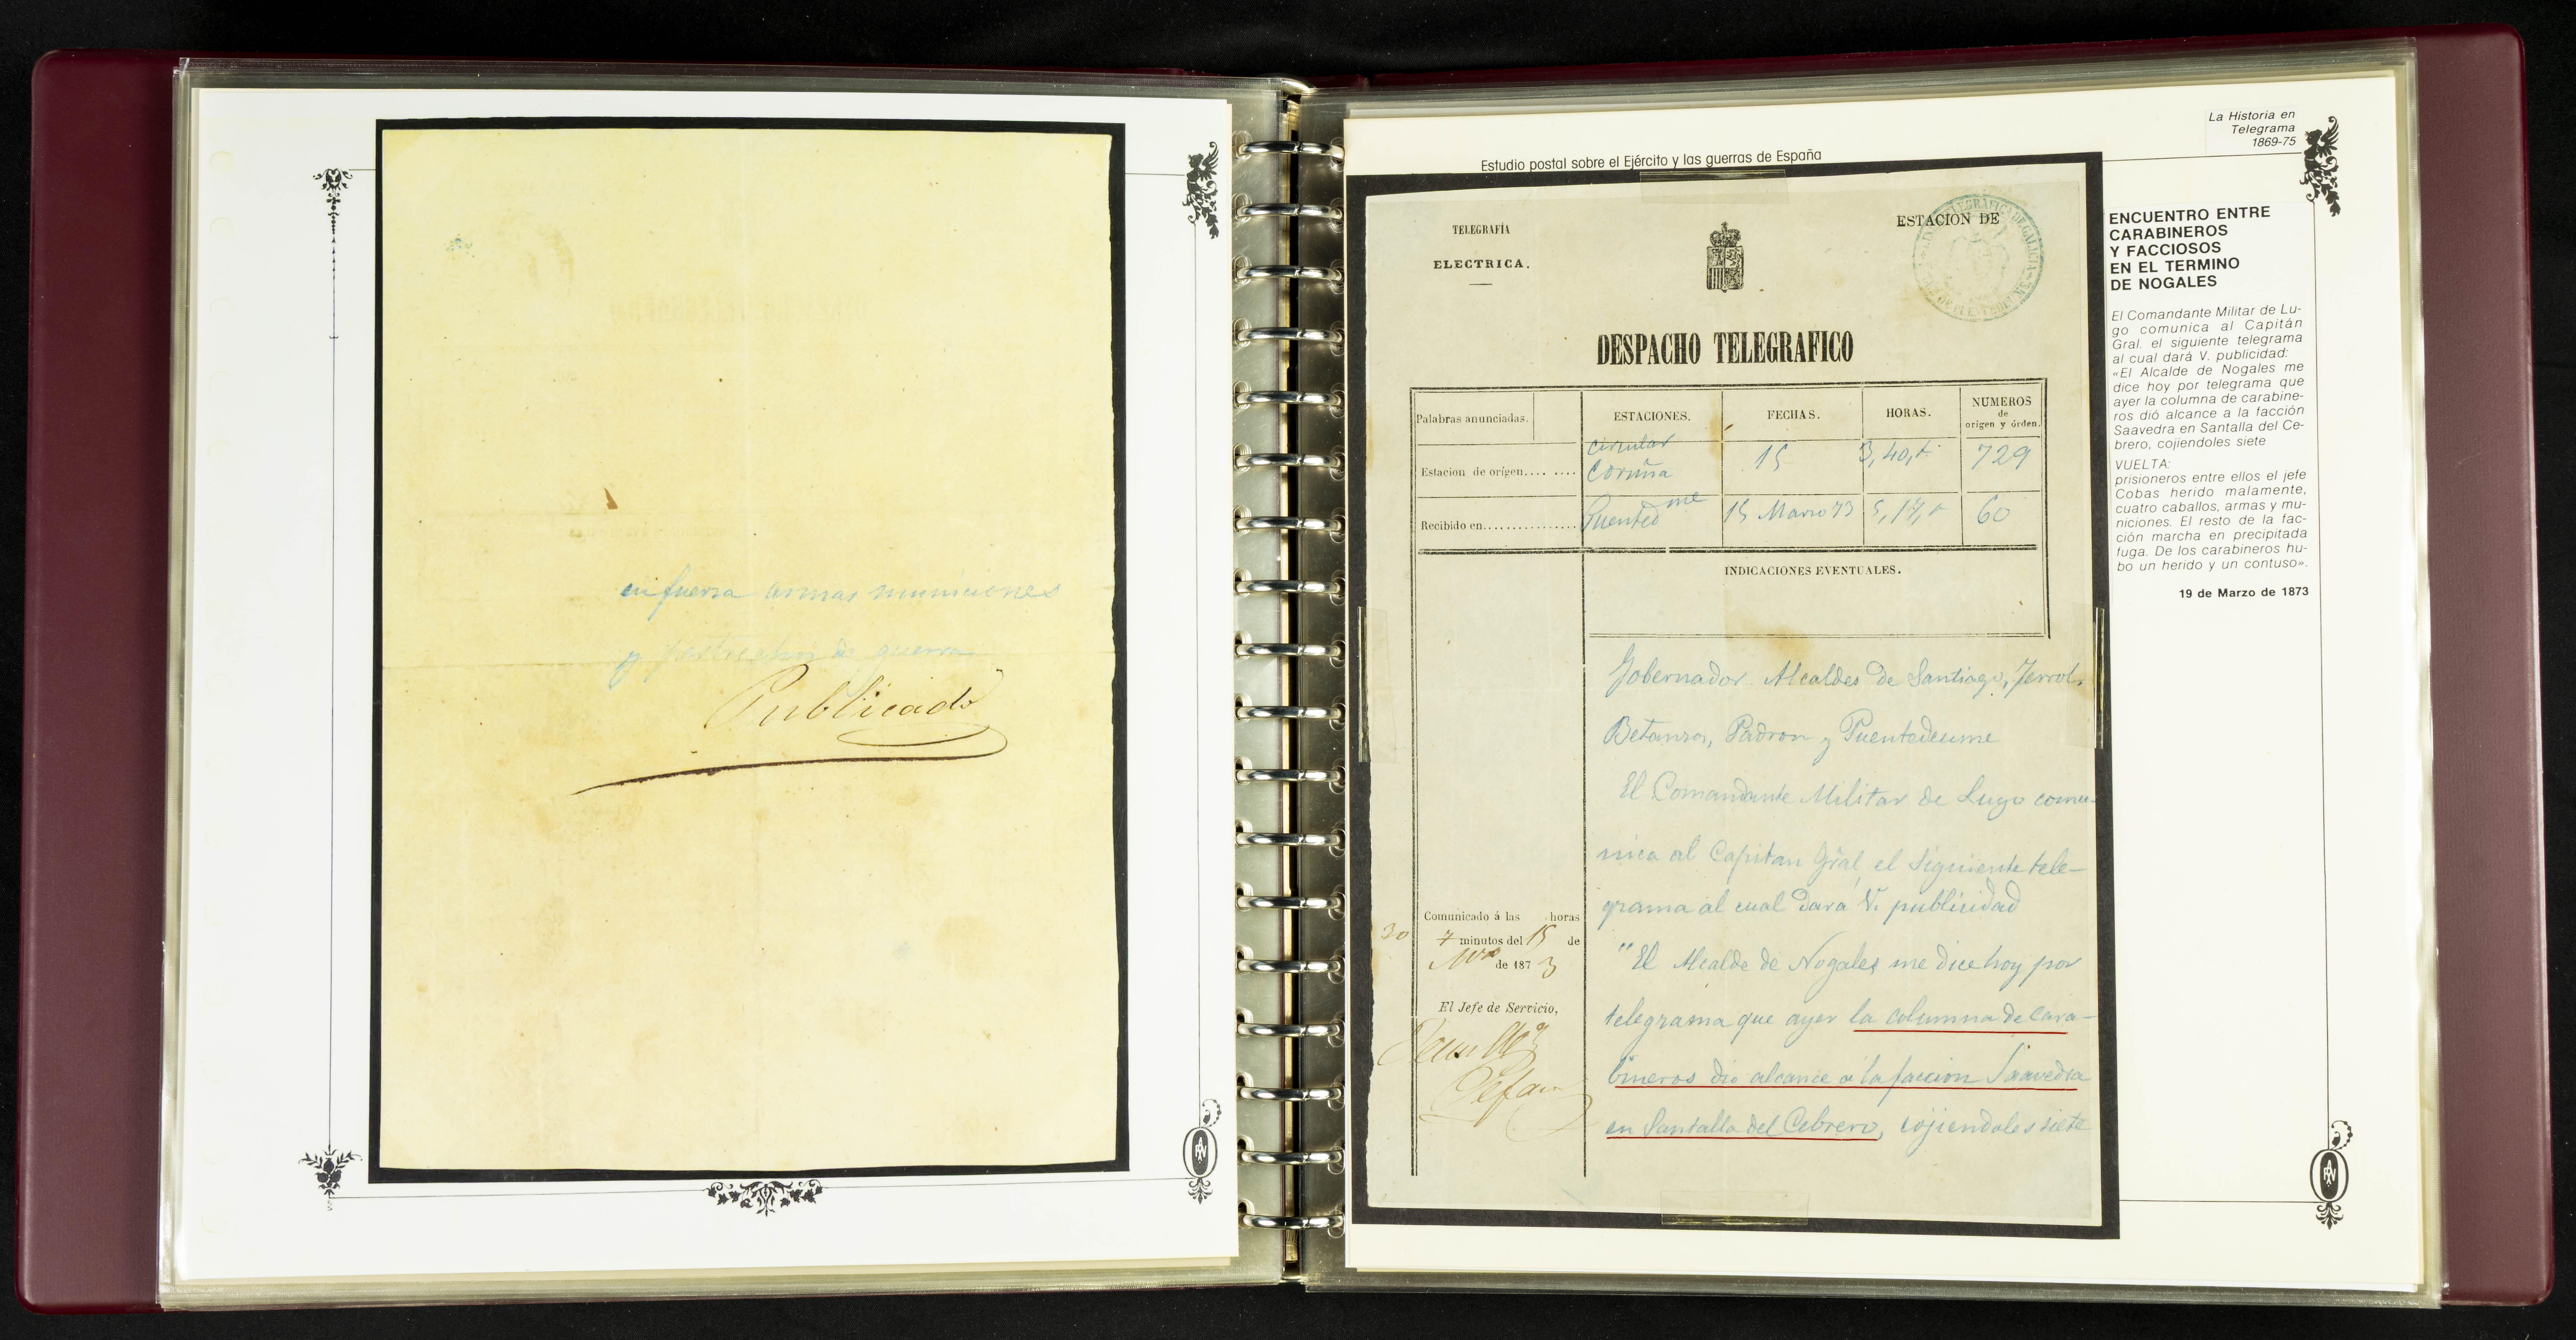 en fuerza armas municiones
y pertrechos de guerra
Publicado
La Historia en
Telegrama
1869-75
Estudio postal sobre el Ejército y las guerras de España
TELEGRAFÍA
ELECTRICA.
ESTACION DE
DESPACHO TELEGRAFICO
Palabras anunciadas.
ESTACIONES.
FECHAS.
HORAS.
NUMEROS
de
origen y órden.
Estacion de orígen........
circular
Coruña
15
3,40,t.
729
Recibido en................
Puentedme
15 Marzo 73
5,17,t
60
INDICACIONES EVENTUALES.
Gobernador Alcaldes de Santiago, Ferrol,
Betanzos, Padron y Puentedeume
El Comandante Militar de Lugo comu-
nica al Capitan Gral el siguiente tele-
grama al cual dará V. publicidad
"El Alcalde de Nogales me dice hoy por
telegrama que ayer la columna de cara-
bineros dio alcance a la faccion Saavedra
en Santalla del Cebrero, cojiendoles siete
Comunicado á las horas
30 7 minutos del 15 de
Mzo de 1873
El Jefe de Servicio,
ENCUENTRO ENTRE
CARABINEROS
Y FACCIOSOS
EN EL TERMINO
DE NOGALES
El Comandante Militar de Lu-
go comunica al Capitán
Gral. el siguiente telegrama
al cual dará V. publicidad:
«El Alcalde de Nogales me
dice hoy por telegrama que
ayer la columna de carabine-
ros dió alcance a la facción
Saavedra en Santalla del Ce-
brero, cojiendoles siete
VUELTA:
prisioneros entre ellos el jefe
Cobas herido malamente,
cuatro caballos, armas y mu-
niciones. El resto de la fac-
ción marcha en precipitada
fuga. De los carabineros hu-
bo un herido y un contuso».
19 de Marzo de 1873